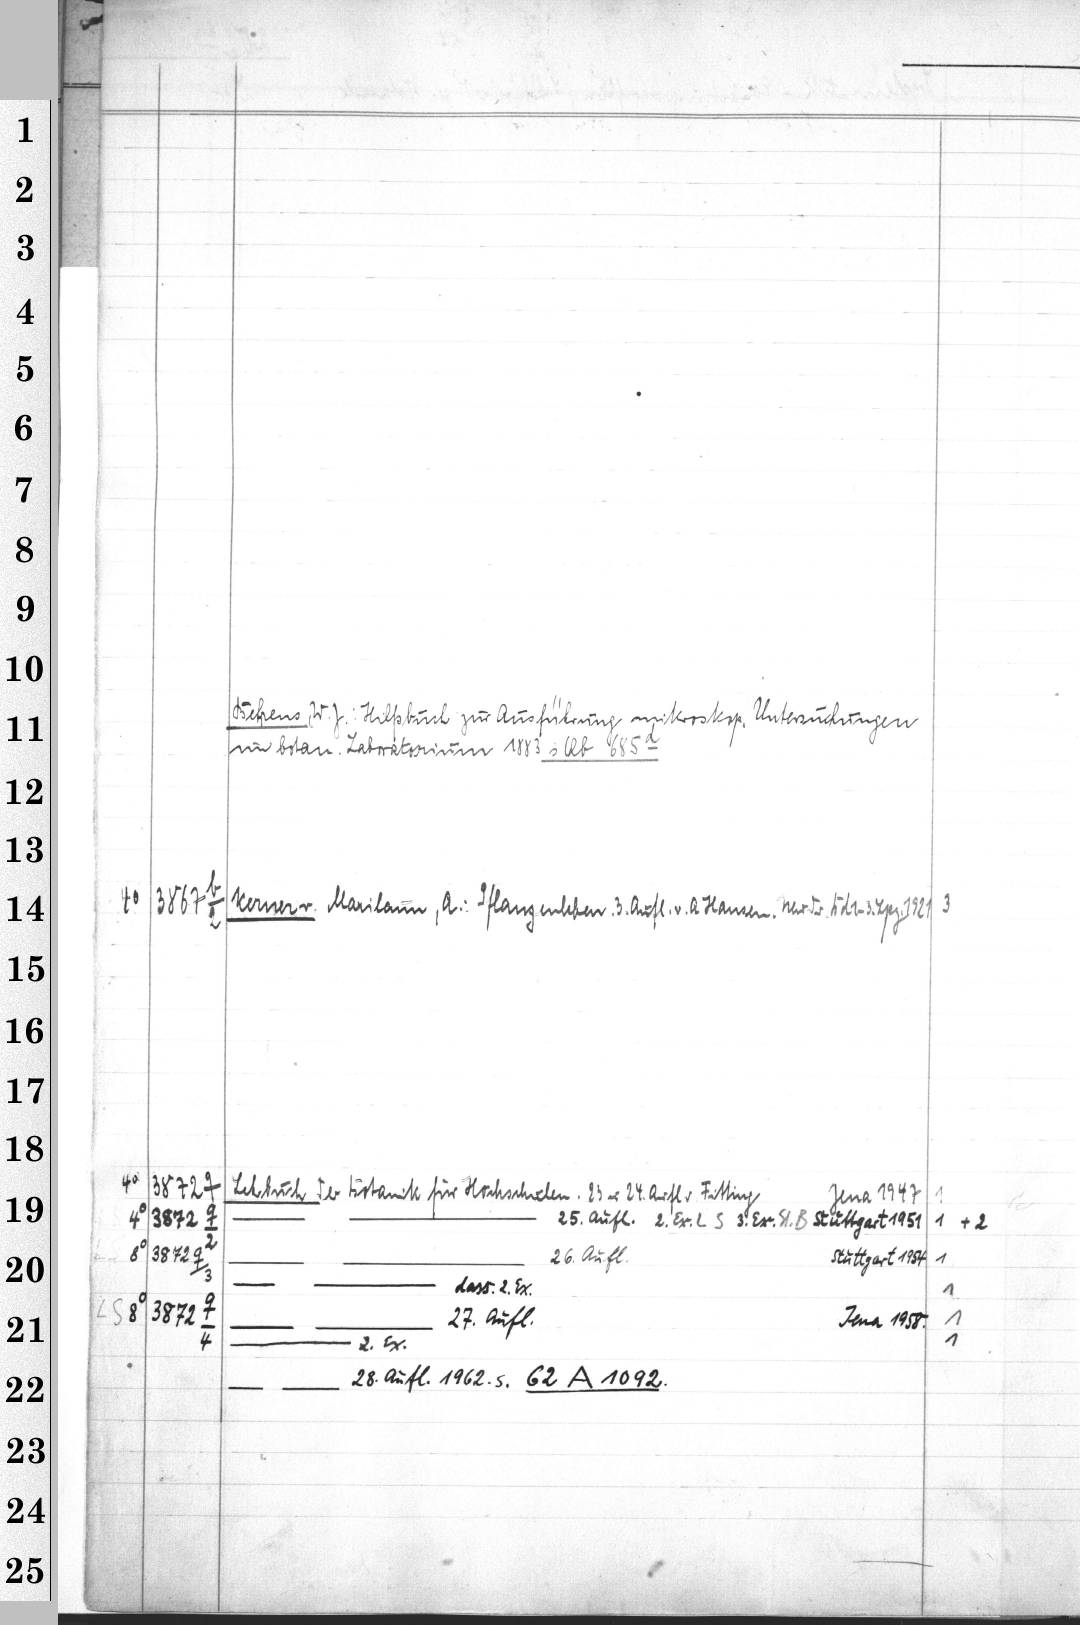 1
2
3
4
5
6
7
8
9
10
Behrens, W. J.: Hilfsbuch zur Ausführung mikroskop. Untersuchungen
11
im botan. Laboratorium 1883 s. Qb 685 a
12
13
14 4° 3867 b/2 Kerner v. Marilaun, A.: Pflanzenleben. 3. Aufl. v. A Hansen. Neudr. Bd 1-3. Lpzg. 1921 3
15
16
17
18
4° 3872 q Lehrbuch der Botanik für Hochschulen. 23 u 24. Aufl v Fitting Jena 1947 1
19 4° 3872 q/2 25. Aufl. 2. Ex. L S 3. Ex. St. B Stuttgart 1951 1 + 2
20 8° 3872 q/3 26. Aufl. Stuttgart 1954 1
dass. 2. Ex. 1
21 LS 8° 3872 q/4 27. Aufl. Jena 1958. 1
2. Ex. 1
22 28. Aufl. 1962. s. 62 A 1092.
23
24
25